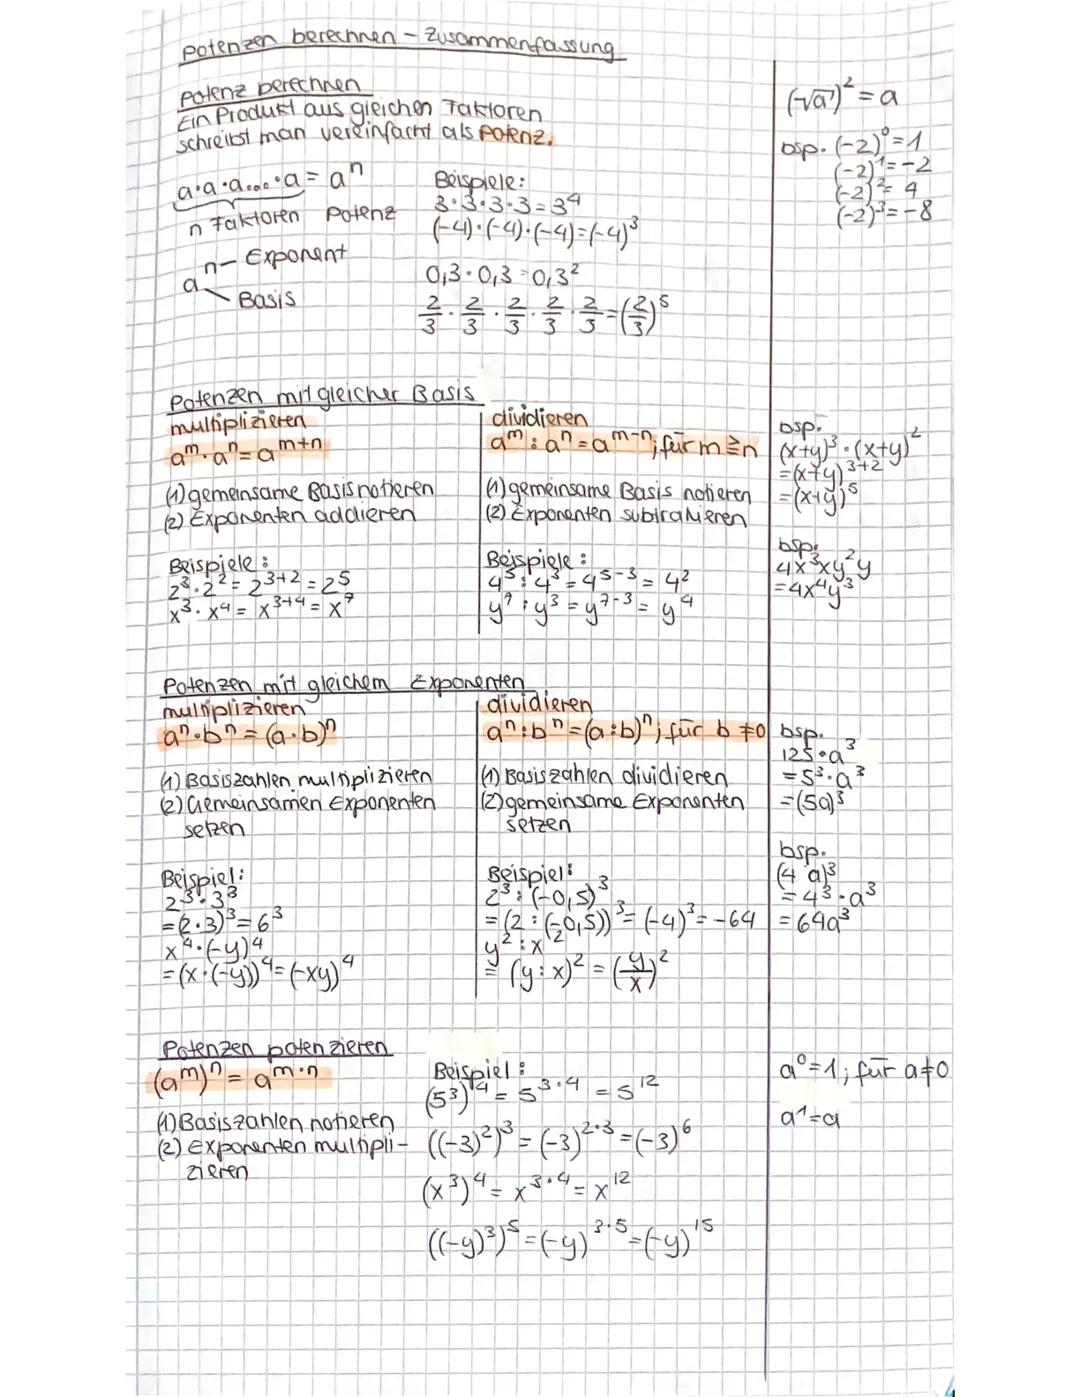 Potenzen berechnen - Zusammenfassung
Potenz berechnen
Ein Produkt aus gleichen Faktoren
schreibt man vereinfacht als Potenz.
a·a·a...·a = aⁿ
n Faktoren Potenz
aⁿ - Exponent
Basis
Beispiele:
3·3·3·3 = 3⁴
(-4)·(-4)·(-4) = (-4)³
0,3·0,3 = 0,3²
2/3 · 2/3 · 2/3 · 2/3 · 2/3 = (2/3)⁵
(√a)² = a
bsp. (-2)⁰ = 1
(-2)¹ = -2
(-2)² = 4
(-2)³ = -8
Potenzen mit gleicher Basis
multiplizieren
aᵐ·aⁿ = aᵐ⁺ⁿ
(1) gemeinsame Basis notieren
(2) Exponenten addieren
Beispiele:
2³·2² = 2³⁺² = 2⁵
x³·x⁴ = x³⁺⁴ = x⁷
dividieren
aᵐ : aⁿ = aᵐ⁻ⁿ; für m ≧ n
(1) gemeinsame Basis notieren
(2) Exponenten subtrahieren
Beispiele:
4⁵ : 4³ = 4⁵⁻³ = 4²
y⁷ : y³ = y⁷⁻³ = y⁴
bsp.
(x+y)³·(x+y)²
= (x+y)³⁺²
= (x+y)⁵
bsp.
4x³xy²y
= 4x⁴y³
Potenzen mit gleichem Exponenten
multiplizieren
aⁿ·bⁿ = (a·b)ⁿ
(1) Basiszahlen multiplizieren
(2) Gemeinsamen Exponenten
setzen
Beispiel:
2³·3³
= (2·3)³ = 6³
x⁴·(-y)⁴
= (x·(-y))⁴ = (-xy)⁴
dividieren
aⁿ : bⁿ = (a : b)ⁿ; für b ≠ 0
(1) Basiszahlen dividieren
(2) gemeinsame Exponenten
setzen
Beispiel:
2³ : (-0,5)³
= (2 : (-0,5))³ = (-4)³ = -64
y² : x²
= (y : x)² = (y/x)²
bsp.
125·a³
= 5³·a³
= (5a)³
bsp.
(4 a)³
= 4³·a³
= 64a³
Potenzen potenzieren
(aᵐ)ⁿ = aᵐ˙ⁿ
(1) Basiszahlen notieren
(2) Exponenten multipli-
zieren
Beispiel:
(5³)⁴ = 5³˙⁴ = 5¹²
((-3)²)³ = (-3)²˙³ = (-3)⁶
(x³)⁴ = x³˙⁴ = x¹²
((-y)³)⁵ = (-y)³˙⁵ = (-y)¹⁵
a⁰ = 1; für a ≠ 0
a¹ = a